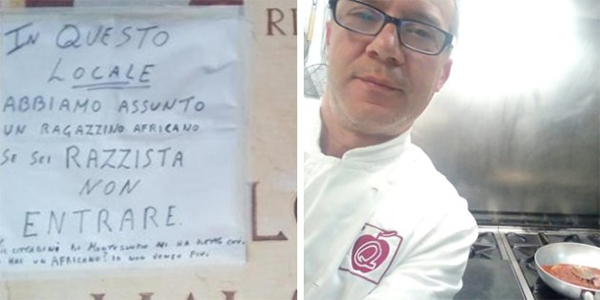 IN QUESTO
LOCALE
ABBIAMO ASSUNTO
UN RAGAZZINO AFRICANO
SE SEI RAZZISTA
NON
ENTRARE.
CITTADINO DI MI HA DETTO
HAI UN AFRICANO? IO NON VENGO PIÙ.
RI
L
Q